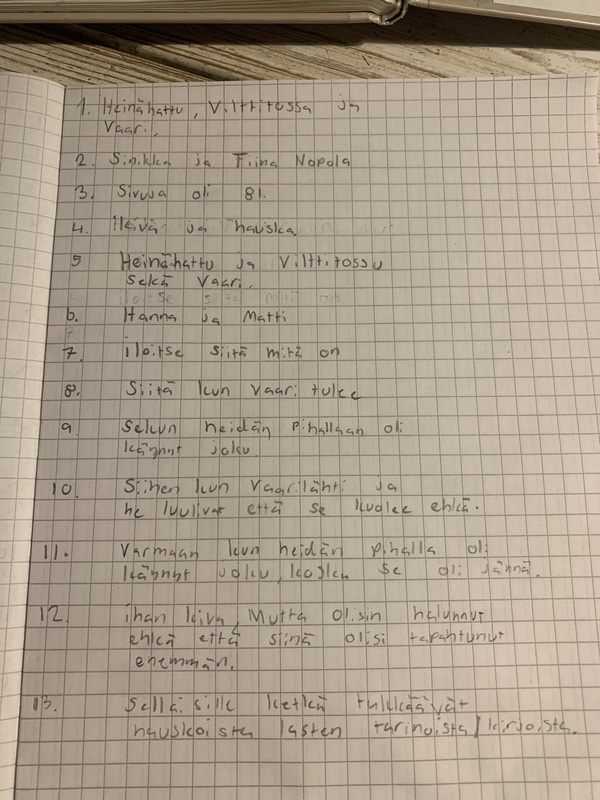 1. Heinähattu, Vilttitossa ja
Vaari.
2. Sinikka ja Tiina Nopola
3. Sivuja oli 81.
4. Heivä ja hauska
5 Heinähattu ja Vilttitossu
sekä Vaari.
6. Hanna ja Matti
7.
7. iloitse siitä mitä on
8. Siitä kun vaari tulee
9 Sekun heidän pihallaan oli
käynnyt joku.
10. Siihen kun vaarilähti ja
he luulivat että se kuolee ehkä.
11. Varmaan kun heidän pihalla oli
käynnyt joku, koska se oli jännä.
12. ihan kiva, Mutta olisin halunnut
ehkä että siinä olisi tapahtunut
enemmän.
13. Selläi sille ketkä tykkäävät
hauskoista lasten tarinoista / kirjoista.